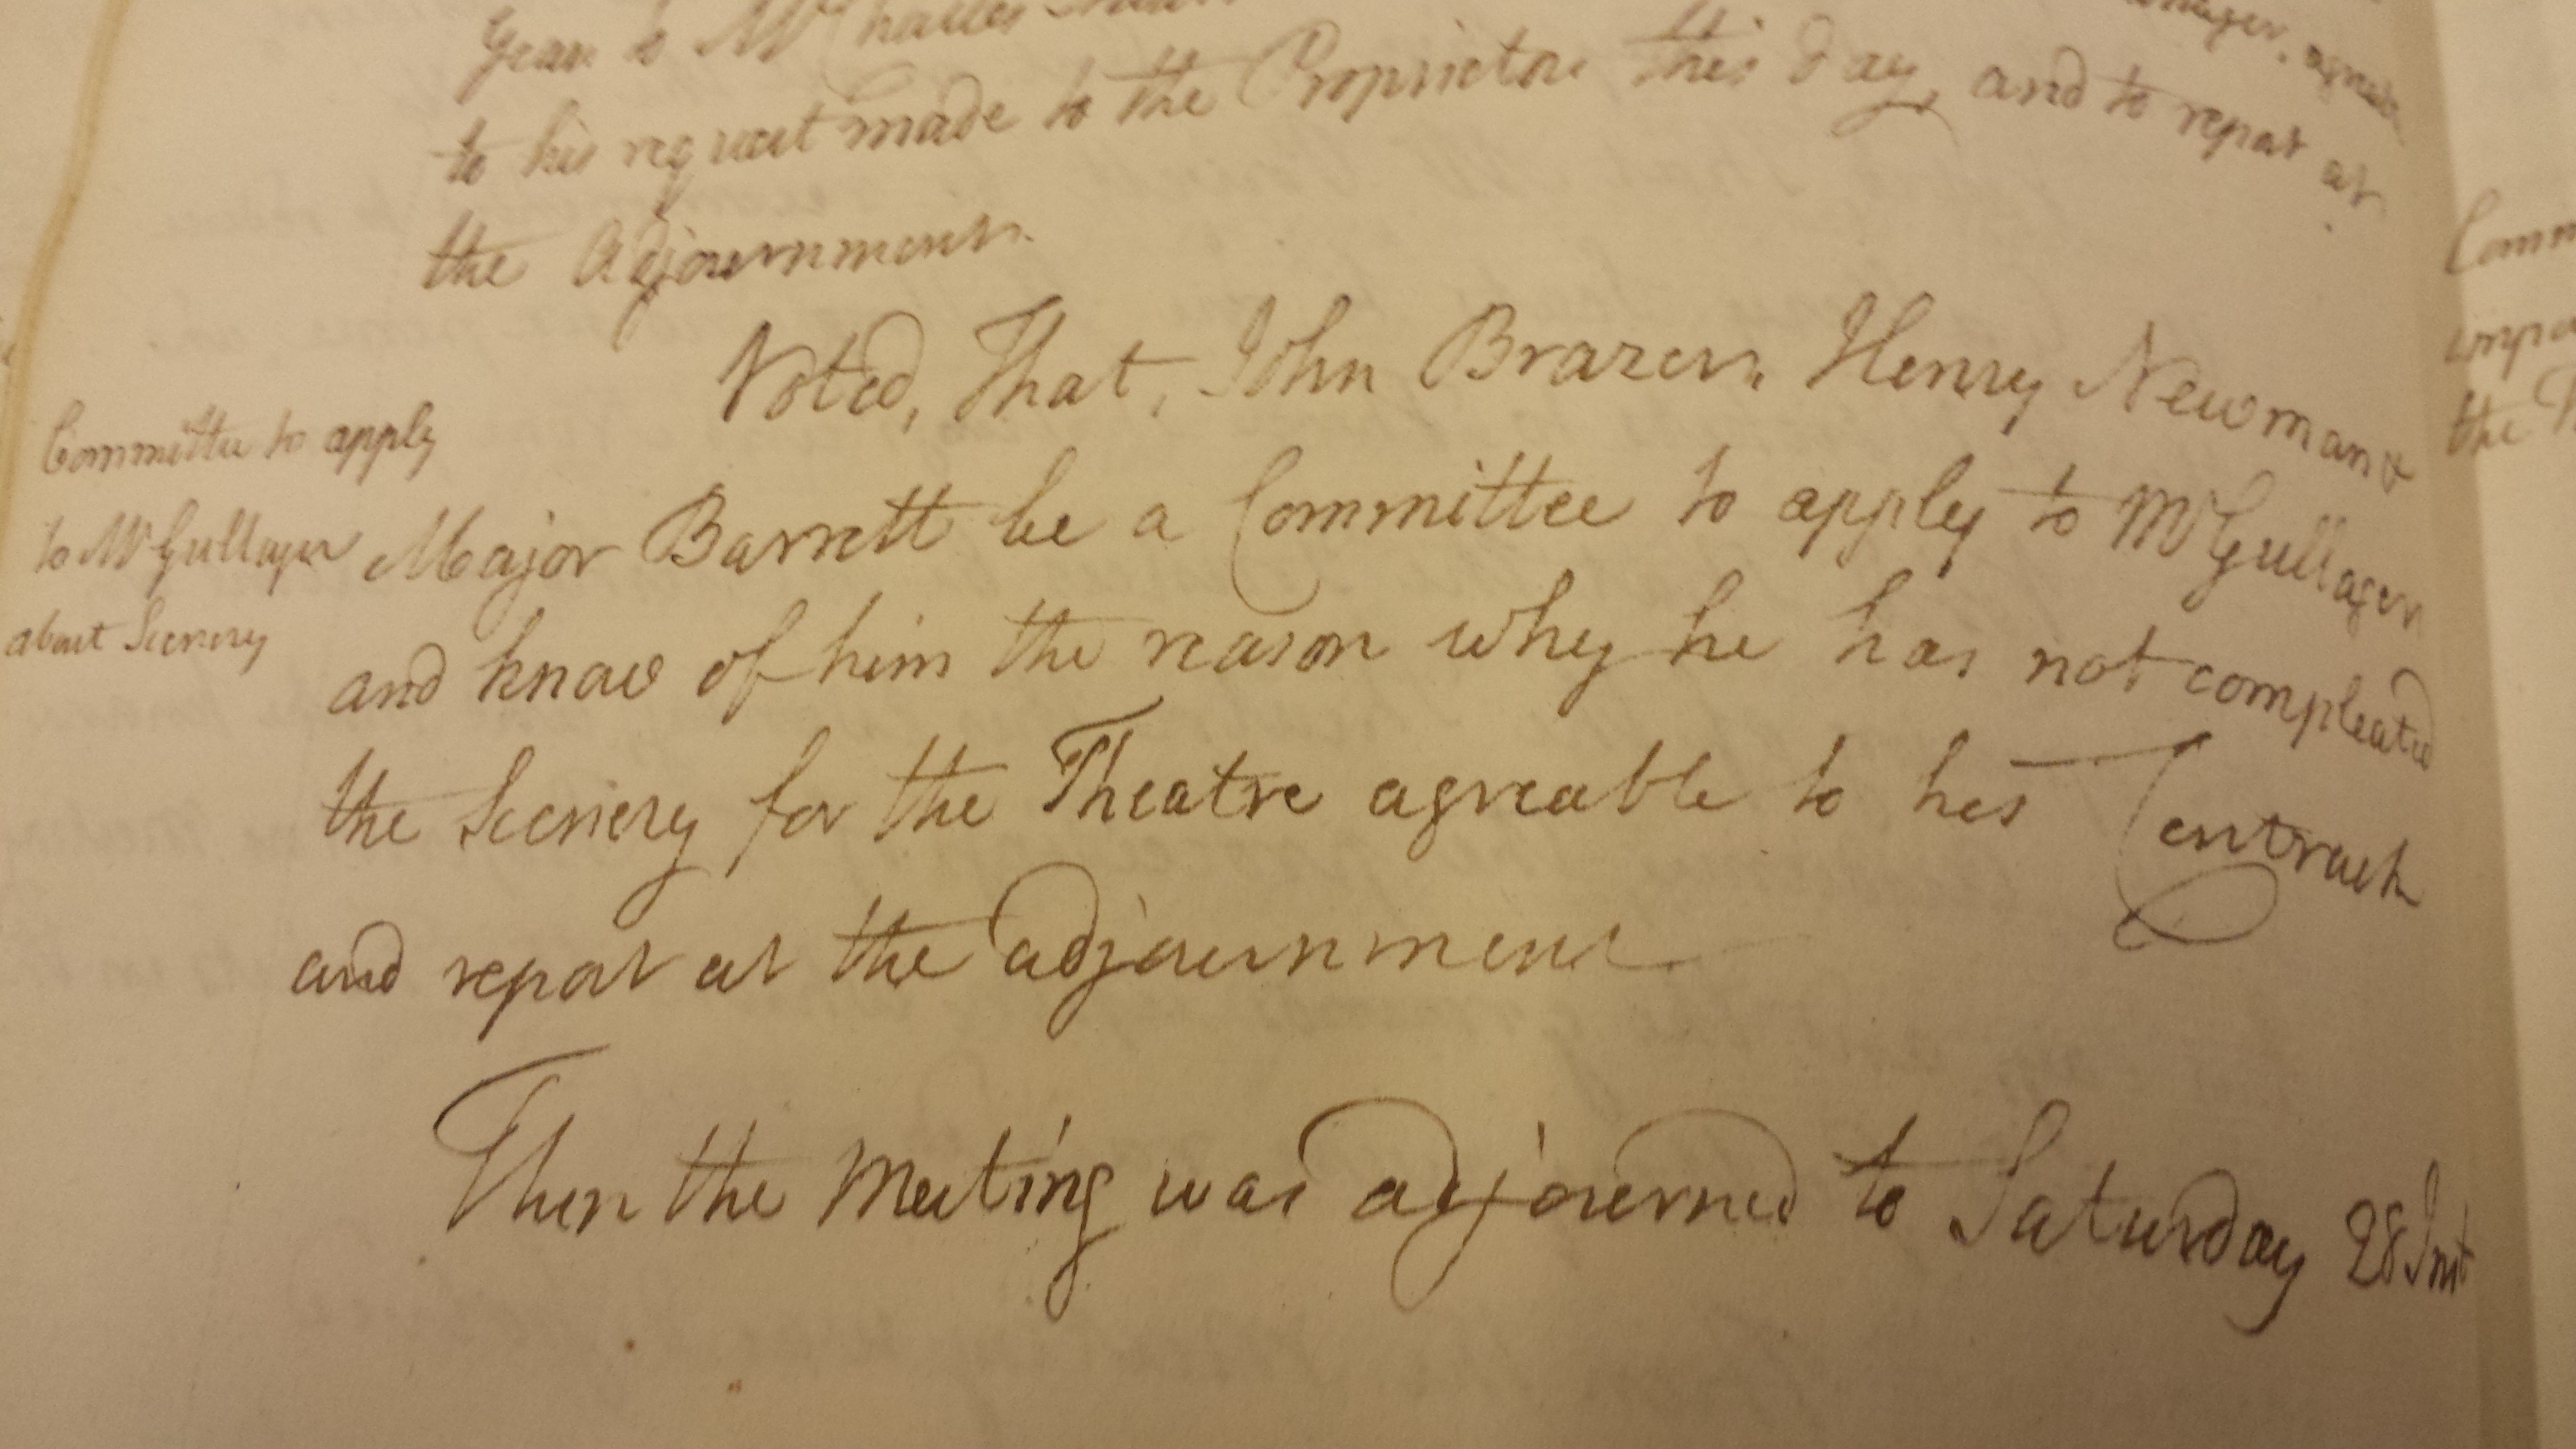 Year to Mr Charles
to his request made to the Proprietors this day, and to report at
the Adjournment.
Voted, That, John Brazer, Henry Newman &
Committee to apply
to Mr Gullager
about Scenery
Major Barrett be a Committee to apply to Mr Gullager
and know of him the reason why he has not compleated
the Scenery for the Theatre agreable to his Contract
and report at the adjournment
Then the Meeting was adjourned to Saturday 28 Inst
Comm
the